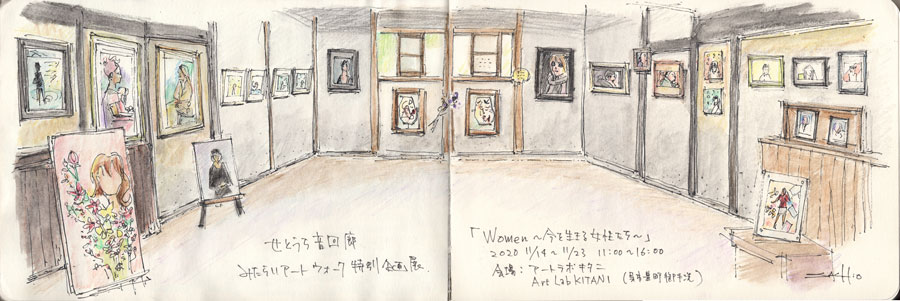 せとうち 回廊
みたらいアートウォーク 特別企画展
「Women 〜今を生きる女性たち〜」
2020 11/14 〜 11/23 11:00〜16:00
会場：アートラボキタニ
Art Lab KITANI (呉市豊町御手洗)